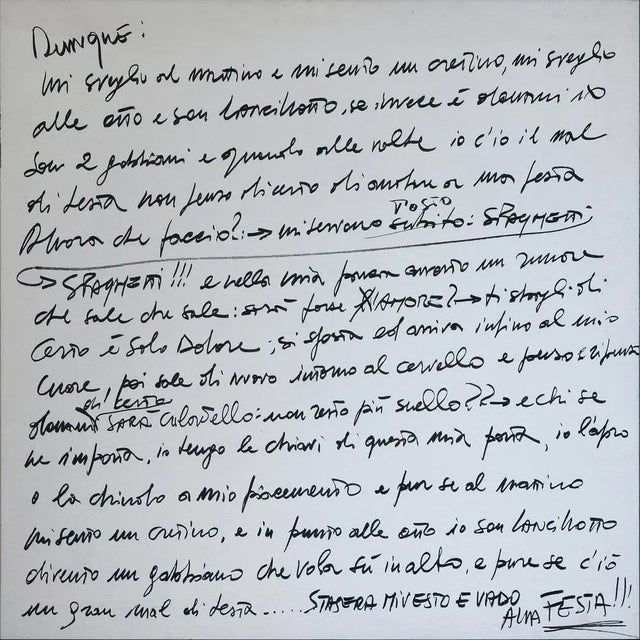 Dunque:
mi sveglio al mattino e mi sento un cretino, mi sveglio
alle otto e son Lancillotto, se invece è domani io
son 2 gabbiani e quando alle volte io c'iò il mal
di testa non penso di certo di andare a una festa
Allora che faccio?: → mi servono subito: SPAGHETTI
TOSTO
→ SPAGHETTI!!! e nella mia pancia avverto un rumore
che sale che sale: sarà forse AMORE? → ti sbagli di
certo è solo Dolore; si sposta ed arriva infino al mio
cuore, poi sale di nuovo intorno al cervello e penso
domani SARÀ coltello: non sento più quello?? → e chi se
di certo
ne importa, io tengo le chiavi di questa mia porta, io l'apro
o la chiudo a mio piacemento e pur se al mattino
mi sento un cretino, e in punto alle otto io son LANCILLOTTO
divento un gabbiano che vola sù in alto, e pure se c'iò
un gran mal di testa ...... STASERA MI VESTO E VADO
ALLA FESTA!!!